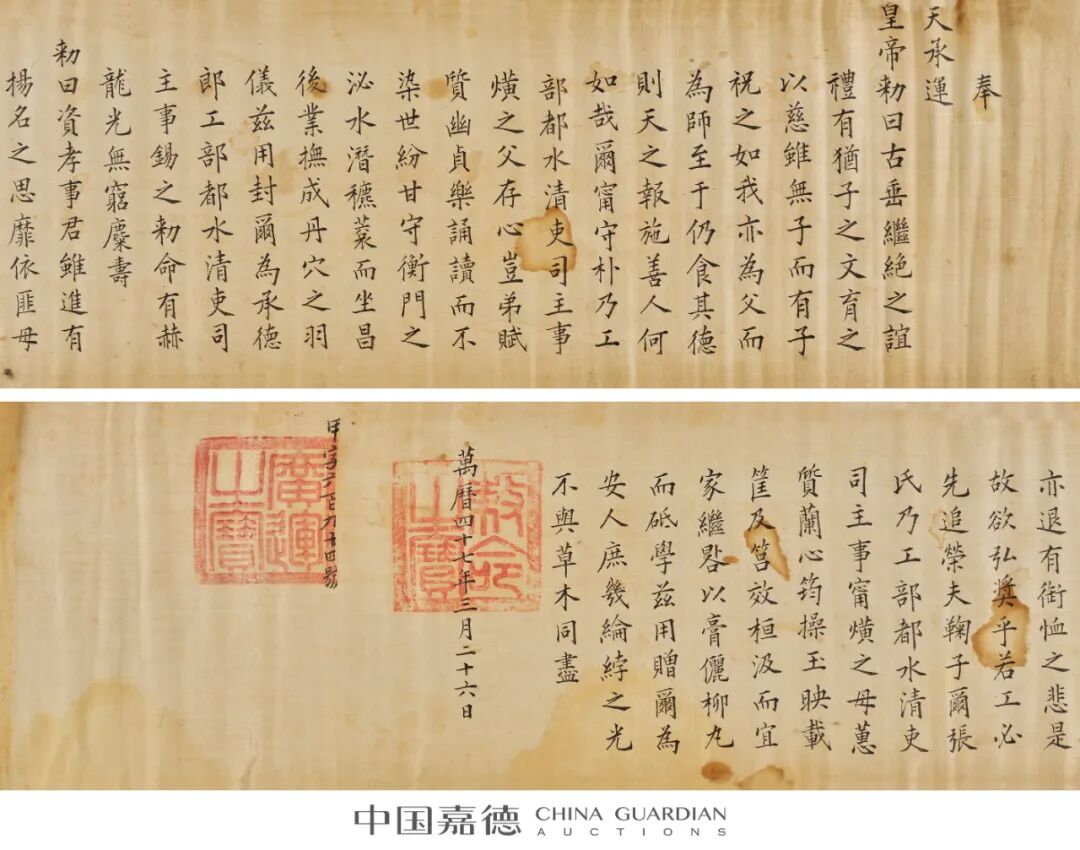 奉
天承運
皇帝勅曰古垂繼絶之誼
禮有猶子之文育之
以慈雖無子而有子
祝之如我亦為父而
為師至于仍食其德
則天之報施善人何
如哉爾甯守朴乃工
部都水清吏司主事
熿之父存心豈弟賦
質幽貞樂誦讀而不
染世紛甘守衡門之
泌水潛穮蔉而坐昌
後業撫成丹穴之羽
儀兹用封爾為承德
郎工部都水清吏司
主事錫之勅命有赫
龍光無窮麋壽
勅曰資孝事君雖進有
揚名之思靡依匪母
亦退有銜恤之悲是
故欲弘奬乎若工必
先追榮夫鞠子爾張
氏乃工部都水清吏
司主事甯熿之母蕙
質蘭心筠操玉映載
筐及筥效桓汲而宜
家繼晷以膏儷柳丸
而砥學兹用贈爾為
安人庶幾綸綍之光
不與草木同盡
萬曆四十七年三月二十六日
敕命之寶
甲字六百九十四號
廣運之寶
中国嘉德 CHINA GUARDIAN
AUCTIONS